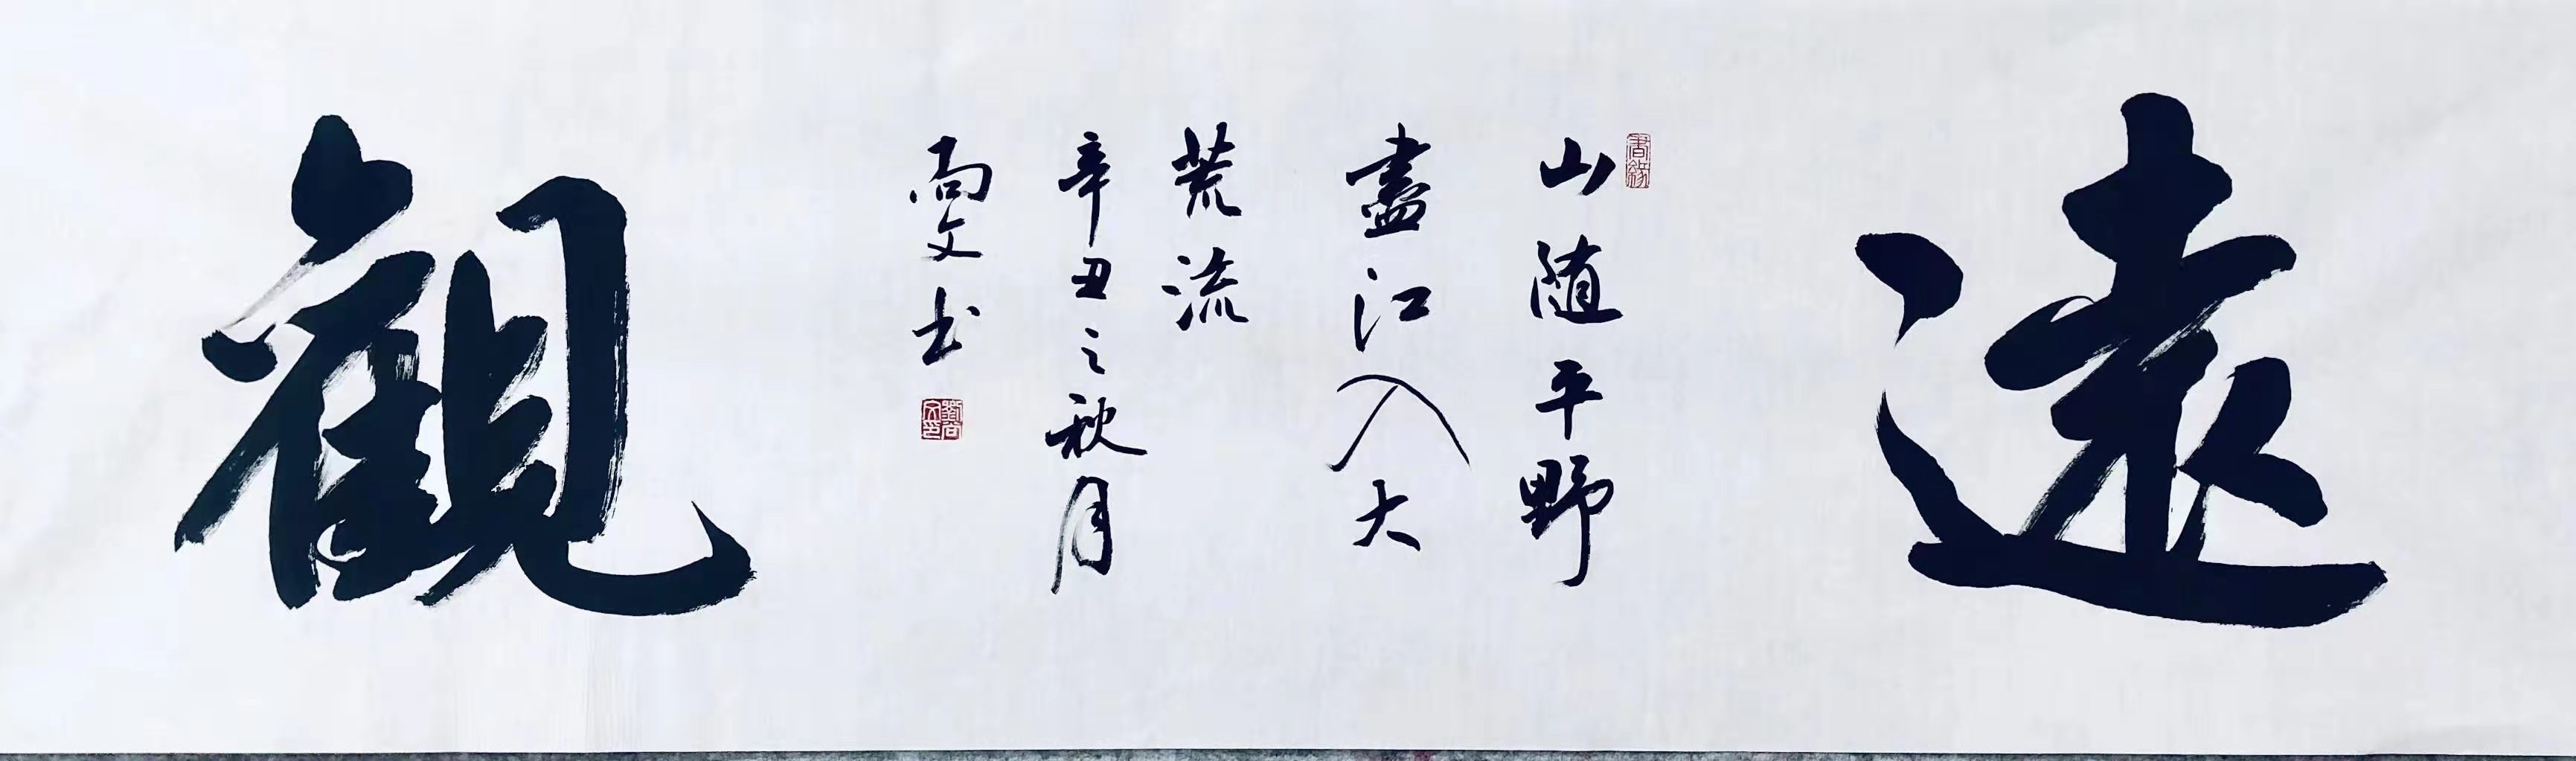 遠
山随平野
盡江入大
荒流
辛丑之秋月
尚文书
觀
書緣